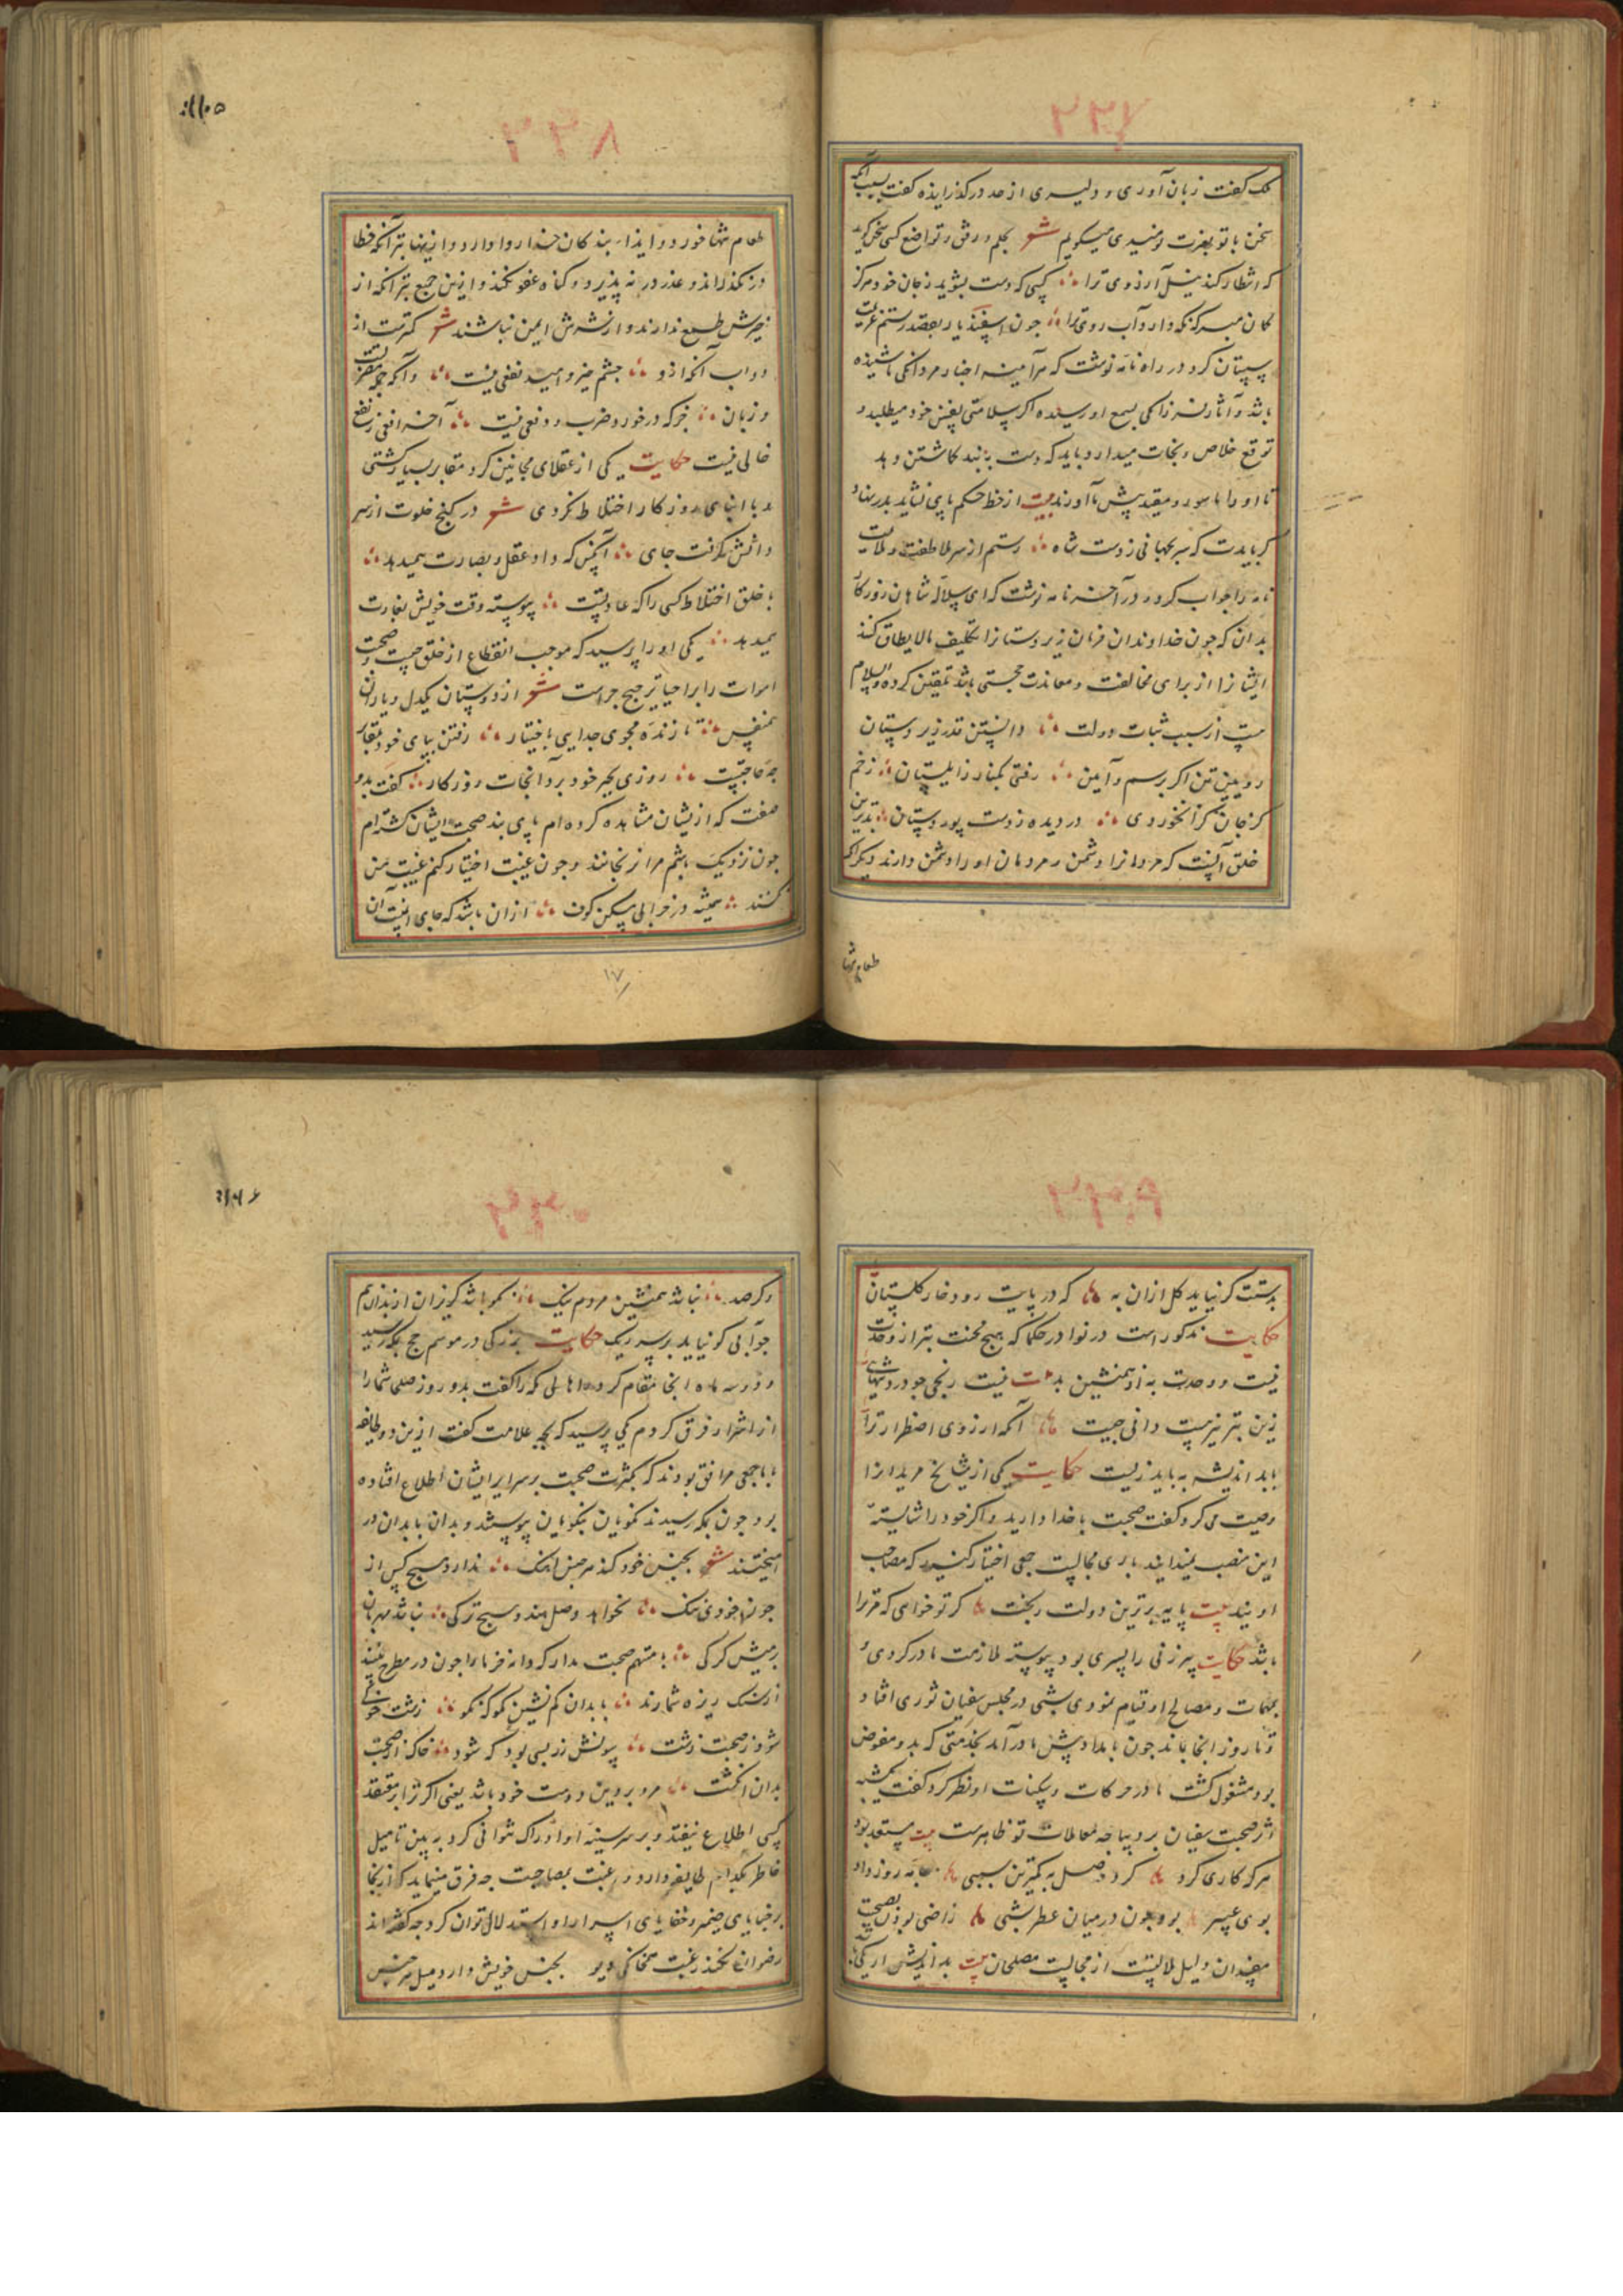 ملک گفت زبان آوری و دلیری از حد در گذرانیده گفت بسبب آنکه
سخن با تو بعزت نومیدی میگویم شعر بحلم و رفق و تواضع کسی سخن گوید
که انتظار کند نیل آرزوی ترا کسی که دست بشوید ز جان خود هرگز
گمان مبر که نکه دارد آب روی ترا جون اسفندیار بقصد رستم عزیمت
سیستان کرد در راه نامه نوشت که هرآینه اخبار مردانکی ما شنیده
باشد و آثار فرزانکی بسمع او رسیده اکر سلامتی نفس خود میطلبد و
توقع خلاص و نجات میدارد باید که دست به بند کاشتن دهد
تا او را ماسور و مقید پیش ما آورند بیت از خط حکم پای نشاید بدر نهاد
کر بایدت که سر بجهانی ز دست شاه رستم از سر ملاطفت و ملایمت
نامه را جواب کرد و در آخر نامه نوشت که ای سلاله شاهان روزکار
بدان که جون خداوندان فرمان زیردستانرا تکلیف مالایطاق کنند
ایشانرا از برای مخالفت و معاندت حجتی باشد تلقین کرده والسلام
هست از سبب ثبات دولت دانستن قدر زیردستان
رویین تن اکر برسم و آیین رفتی بکنار زابلستان زخم
کز جان کزا نخوردی در دیده ز دست پور دستان بدترین
خلق آنست که مردمانرا دشمن و مردمان او را دشمن دارند دیکر آنکه
طعام تنها
طعام تنها خورد و ایذاء بندکان خدا روا دارد و ازینها بتر آنکه خطا
در نکذراند و عذر در نه پذیرد و کناه عفو نکند و ازین جمیع بتر آنکه از
خیرش طمع ندارند و از شرش ایمن نباشند شعر کمترست از
دواب آنکه ازو جشم خیر و امید نفعی نیست وآنکه
و زبان خرکه در خورد و ضرب و دفعی نیست آخر افعی ز نفع
خالی نیست حکایت یکی از عقلای مجانین کرد مقابر بسیار کشتی
و با ابنای روزکار اختلاط نکردی شعر در کنج خلوت از سر
دانش کرفت جای آنکس که داد عقل و بصارت همیدهد
با خلق اختلاط کسی را که عادتست پیوسته وقت خویش بغارت
همیدهد یکی او را پرسید که موجب انقطاع از خلق چیست و صحبت
اموات را بر احیا ترجیح جراست شعر از دوستان یکدل و یاران
همنفس تا زنده مجوی جدایی باختیار رفتن بپای خود بمقابر
جه حاجتست روزی بجبر خود برد آنجات روزکار گفت بدو
صفت که ازیشان مشاهده کرده ام پای بند صحبت ایشان کشته ام
جون نزدیک باشم مرا نرنجانند و جون غیبت اختیار کنم غیبت من
نکنند همیشه در خرابی مسکن کوف از آن باشد که جای امنیت آن
۱۷
بدستت کر نیاید کل از آن به که در پایت رود خار کلستان
حکایت مذکورست در نوادر حکما که هیچ محنت بتر از وحدت
نیست و وحدت به از همنشین بد بیت نیست رنجی جو درد تنهایی
زین بتر نیز هست دانی جیست آنکه از روی اضطرار ترا
با بد اندیشه به باید زیست حکایت یکی از مشایخ مریدانرا
وصیت می کرد و گفت صحبت با خدا دارید و اکر خود را شایسته
این منصب نمیدانید باری مجالست جمعی اختیار کنید که مصاحب
اویند بیت پایه برترین دولت و بخت کر تو خواهی که مر ترا
باشد حکایت پیرزنی را پسری بود پیوسته ملازمت مادر کردی و
بمهمات و مصالح او قیام نمودی شبی در مجلس سفیان ثوری افتاد
و تا روز آنجا بماند جون بامداد پیش مادر آمد بخدمتی که بدو مفوض
بود مشغول کشت مادر در حرکات و سکنات او نظر کرد گفت
اثر صحبت سفیان بر دیباجه معاملات تو ظاهرست بیت مستعد بود
هر که کاری کرد کرد حاصل به کمترین سببی جامه روز داد
بوی عبیر بود جون در میان عطر شبی راضی بودن بصحبت
مفسدان دلیل ملالتست از مجالست مصلحان بیت بد اندیش ار یکی باشد
و کر صد نباشد همنشین مردم نیک نکو باشد کریزان از بدان هم
جو آبی کو نیاید بر سر ریک حکایت بزرکی در موسم حج بمکه رسید
و دو سه ماه آنجا مقام کرد و اهالی مکه را گفت بدو روز صلحی شما را
از اشرار فرق کردم یکی پرسید که بجه علامت گفت ازین دو طایفه
با ما جمعی مرافق بودند که بکثرت صحبت بر سرایر ایشان اطلاع افتاده
بود جون بمکه رسیدند نکویان بنکویان پیوستند و بدان با بدان در
آمیختند شعر بجنس خود کند هر جنس آهنک ندارد هیچ کس از
جون خودی ننک نخواهد وصل هندو هیچ ترکی نباشد مهربان
بر میش کرکی با متهم صحبت مدار که دانه خرما را جون در مطرح بینند
از سنک ریزه شمارند با بدان کم نشین نکو که نکو زشت خوی
شود ز صحبت زشت سونش زر بسی بود که شود خاک از صحبت
بدان انکشت مرد بر دین دوست خود باشد یعنی اکر ترا بر معتقد
کسی اطلاع نیفتد و بر سر سینه او ادراک نتوانی کرد به بین تا میل
خاطر بکدام طایفه دارد و رغبت بمصاحبت جه فرق مینماید که از آنجا
بر خبایای ضمیر و خفایای اسرار او استدلال توان کرد جه گفته اند
رضوان نکند رغبت همخانکی دیو بجنس خویش دارد میل هر جنس